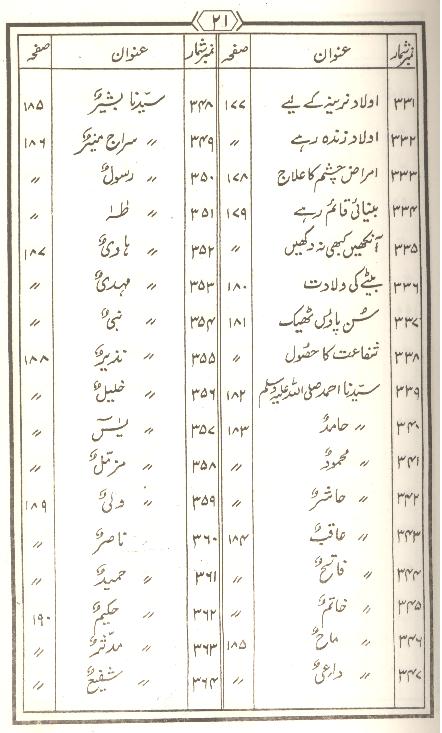 ۲۱
نمبر شمار عنوان صفحہ
۳۳۱ اولاد نرینہ کے لیے ۱۷۷
۳۳۲ اولاد زندہ رہے 〃
۳۳۳ امراض چشم کا علاج ۱۷۸
۳۳۴ بینائی قائم رہے ۱۷۹
۳۳۵ آنکھیں کبھی نہ دکھیں 〃
۳۳۶ بیٹے کی ولادت ۱۸۰
۳۳۷ سُن پاؤں ٹھیک ۱۸۱
۳۳۸ شفاعت کا حصول 〃
۳۳۹ سیّدنا احمد صلی اللہ علیہ وسلم ۱۸۲
۳۴۰ 〃 حامدؐ ۱۸۳
۳۴۱ 〃 محمودؐ 〃
۳۴۲ 〃 حاشرؐ 〃
۳۴۳ 〃 عاقبؐ ۱۸۴
۳۴۴ 〃 فاتحؐ 〃
۳۴۵ 〃 خاتمؐ 〃
۳۴۶ 〃 ماحؐ ۱۸۵
۳۴۷ 〃 داعیؐ 〃
نمبر شمار عنوان صفحہ
۳۴۸ سیّدنا بشیرؐ ۱۸۵
۳۴۹ 〃 سراج منیرؐ ۱۸۶
۳۵۰ 〃 رسولؐ 〃
۳۵۱ 〃 طٰہٰ 〃
۳۵۲ 〃 ہادیؐ ۱۸۷
۳۵۳ 〃 مہدیؐ 〃
۳۵۴ 〃 نبیؐ 〃
۳۵۵ 〃 نذیرؐ ۱۸۸
۳۵۶ 〃 خلیلؐ 〃
۳۵۷ 〃 یٰسٓ 〃
۳۵۸ 〃 مزملؐ 〃
۳۵۹ 〃 ولیؐ ۱۸۹
۳۶۰ 〃 ناصرؐ 〃
۳۶۱ 〃 حمیدؐ 〃
۳۶۲ 〃 حکیمؐ ۱۹۰
۳۶۳ 〃 مدّثرؐ 〃
۳۶۴ 〃 شفیعؐ 〃